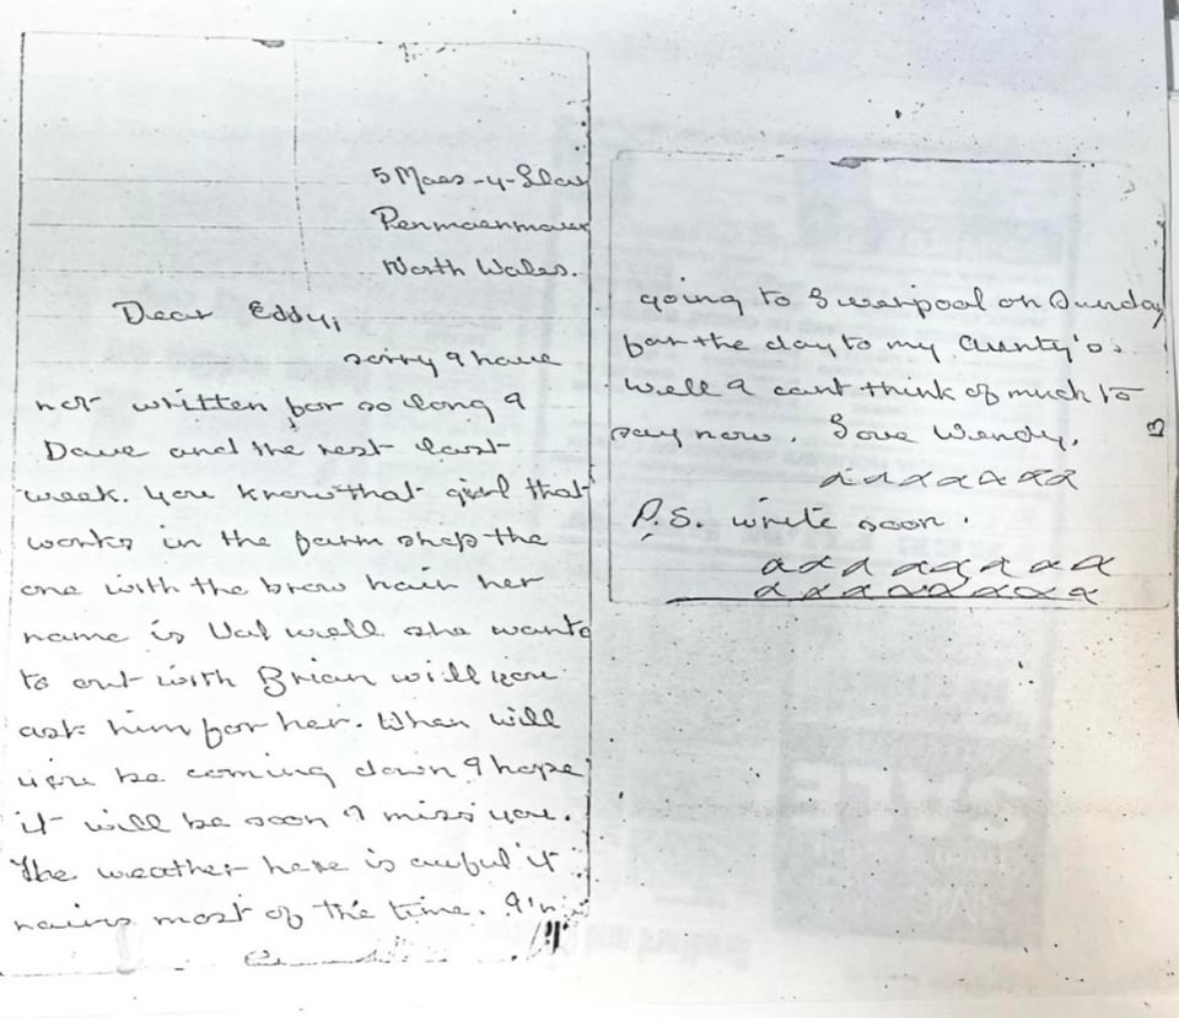 5 Maes-y-
Penmaenmawr
North Wales.
Dear Eddy,
sorry I have
not written for so long I
Dave and the rest last
week. You know that girl that
works in the farm shop the
one with the brow hair her
name is Val well she wants
to out with Brian will you
ask him for her. When will
you be coming down I hope
it will be soon I miss you.
The weather here is awful it
rains most of the time. I'm
going to Liverpool on Sunday
for the day to my Aunty's.
Well I cant think of much to
say now. Love Wendy.
xxxxxxx
P.S. write soon.
xxxxxxxx
xxxxxxxx